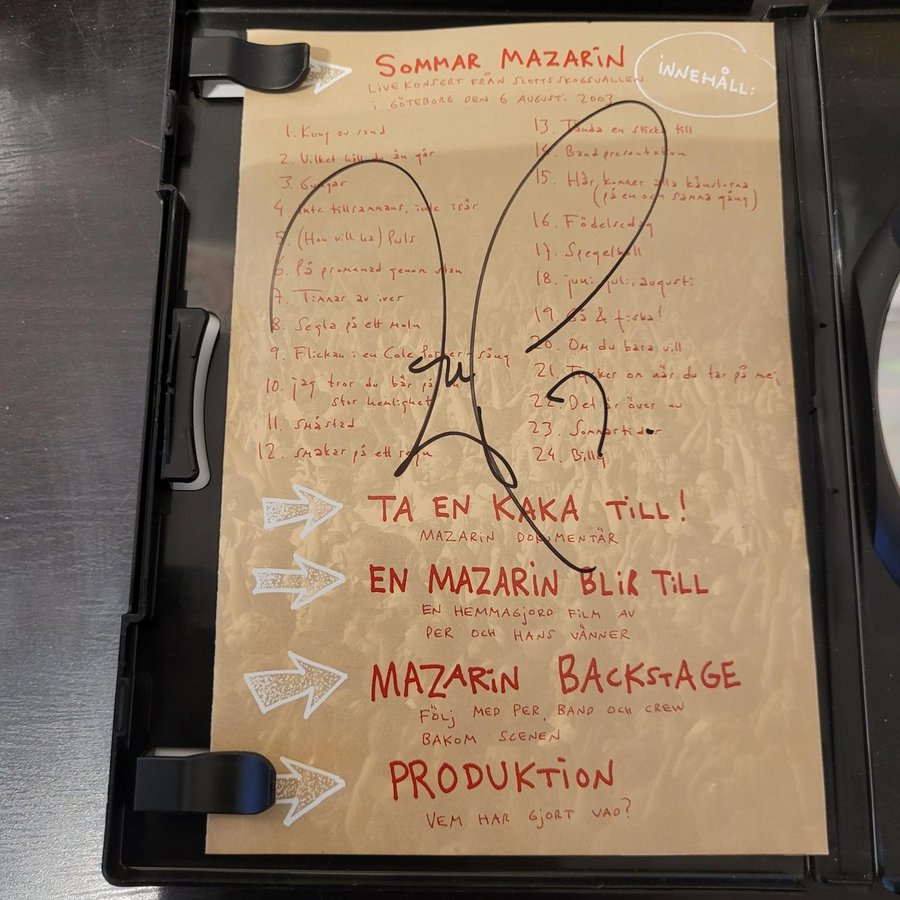 SOMMAR MAZARiN
LiVEKONSERT FRÅN SLOTTSSKOGSVALLEN
i GÖTEBORG DEN 6 AUGUSTi 2003
iNNEHÅLL:
1. Kung av sand
2. Vilket håll du än går
3. Gungar
4. inte tillsammans, inte isär
5. (Hon vill ha) Puls
6. På promenad genom stan
7. Timmar av iver
8. Segla på ett moln
9. Flickan i en Cole Porter-sång
10. jag tror du bär på
stor hemlighet
11. småstad
12. smakar på ett regn
13. Tända en sticka till
14. Bandpresentation
15. Här kommer alla känslorna
(på en och samma gång)
16. Födelsedag
17. Spegelboll
18. juni, juli, augusti
19. Gå & fiska!
20. Om du bara vill
21. Tycker om när du tar på mej
22. Det är över nu
23. Sommartider
24. Billy
TA EN KAKA TiLL!
MAZARiN DOKUMENTÄR
EN MAZARiN BLiR TiLL
EN HEMMAGjORD FiLM AV
PER OCH HANS VÄNNER
MAZARiN BACKSTAGE
FÖLj MED PER, BAND OCH CREW
BAKOM SCENEN
PRODUKTiON
VEM HAR GjORT VAD?